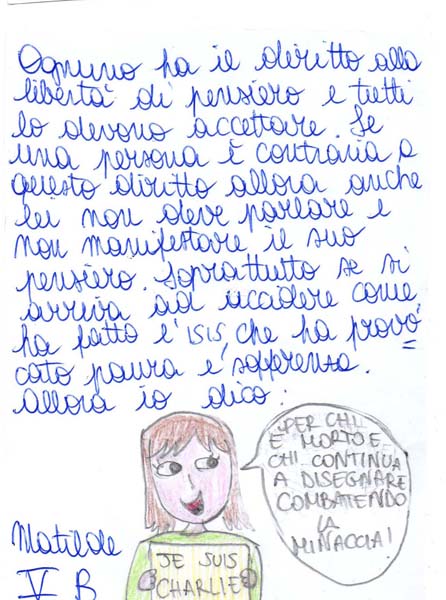 Ognuno ha il diritto alla
libertà di pensiero e tutti
lo devono accettare. Se
una persona è contraria a
questo diritto allora anche
lei non deve parlare e
non manifestare il suo
pensiero. Soprattutto se si
arriva ad uccidere come
ha fatto l'ISIS, che ha provo
cato paura e sofferenza.
Allora io dico:
"PER CHI
E' MORTO E
CHI CONTINUA
A DISEGNARE
COMBATTENDO
LA
MINACCIA!
JE SUIS
CHARLIE
Matilde
V B